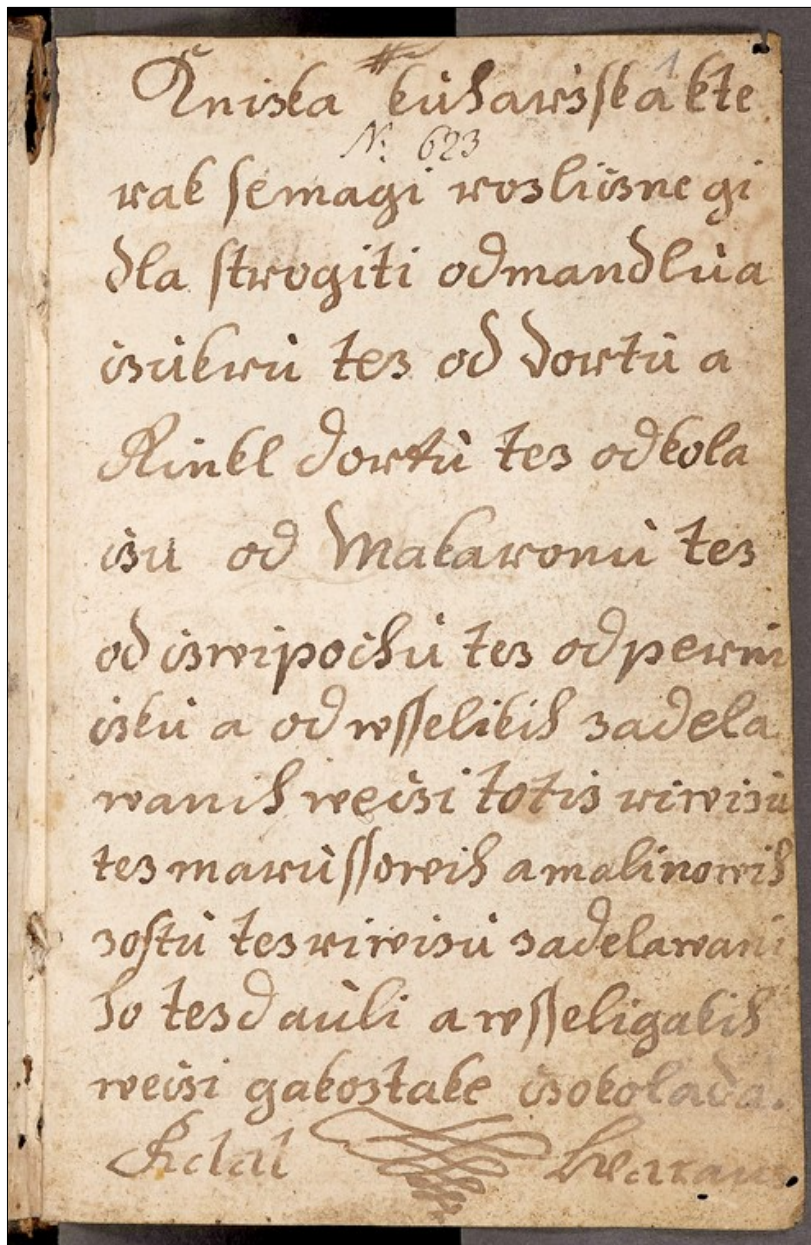 Kniska kúharzſka kte 1
N: 623
rak ſemagi rozlicznegi
dla ſtrogiti odmandlùa
czúkrù tez od dortù a
Rinkl dortù tez odkola
czu od Makaronù tez
od czwipochù tez odperni
czkù a od wſſelikih zadela
wanih weczi totiz riwizù
tez marùſſowih amalinowih
zoſtù tezriwizù zadelawani
ho tezdaùli awſſeligakih
weczi gakoztake czokolada.